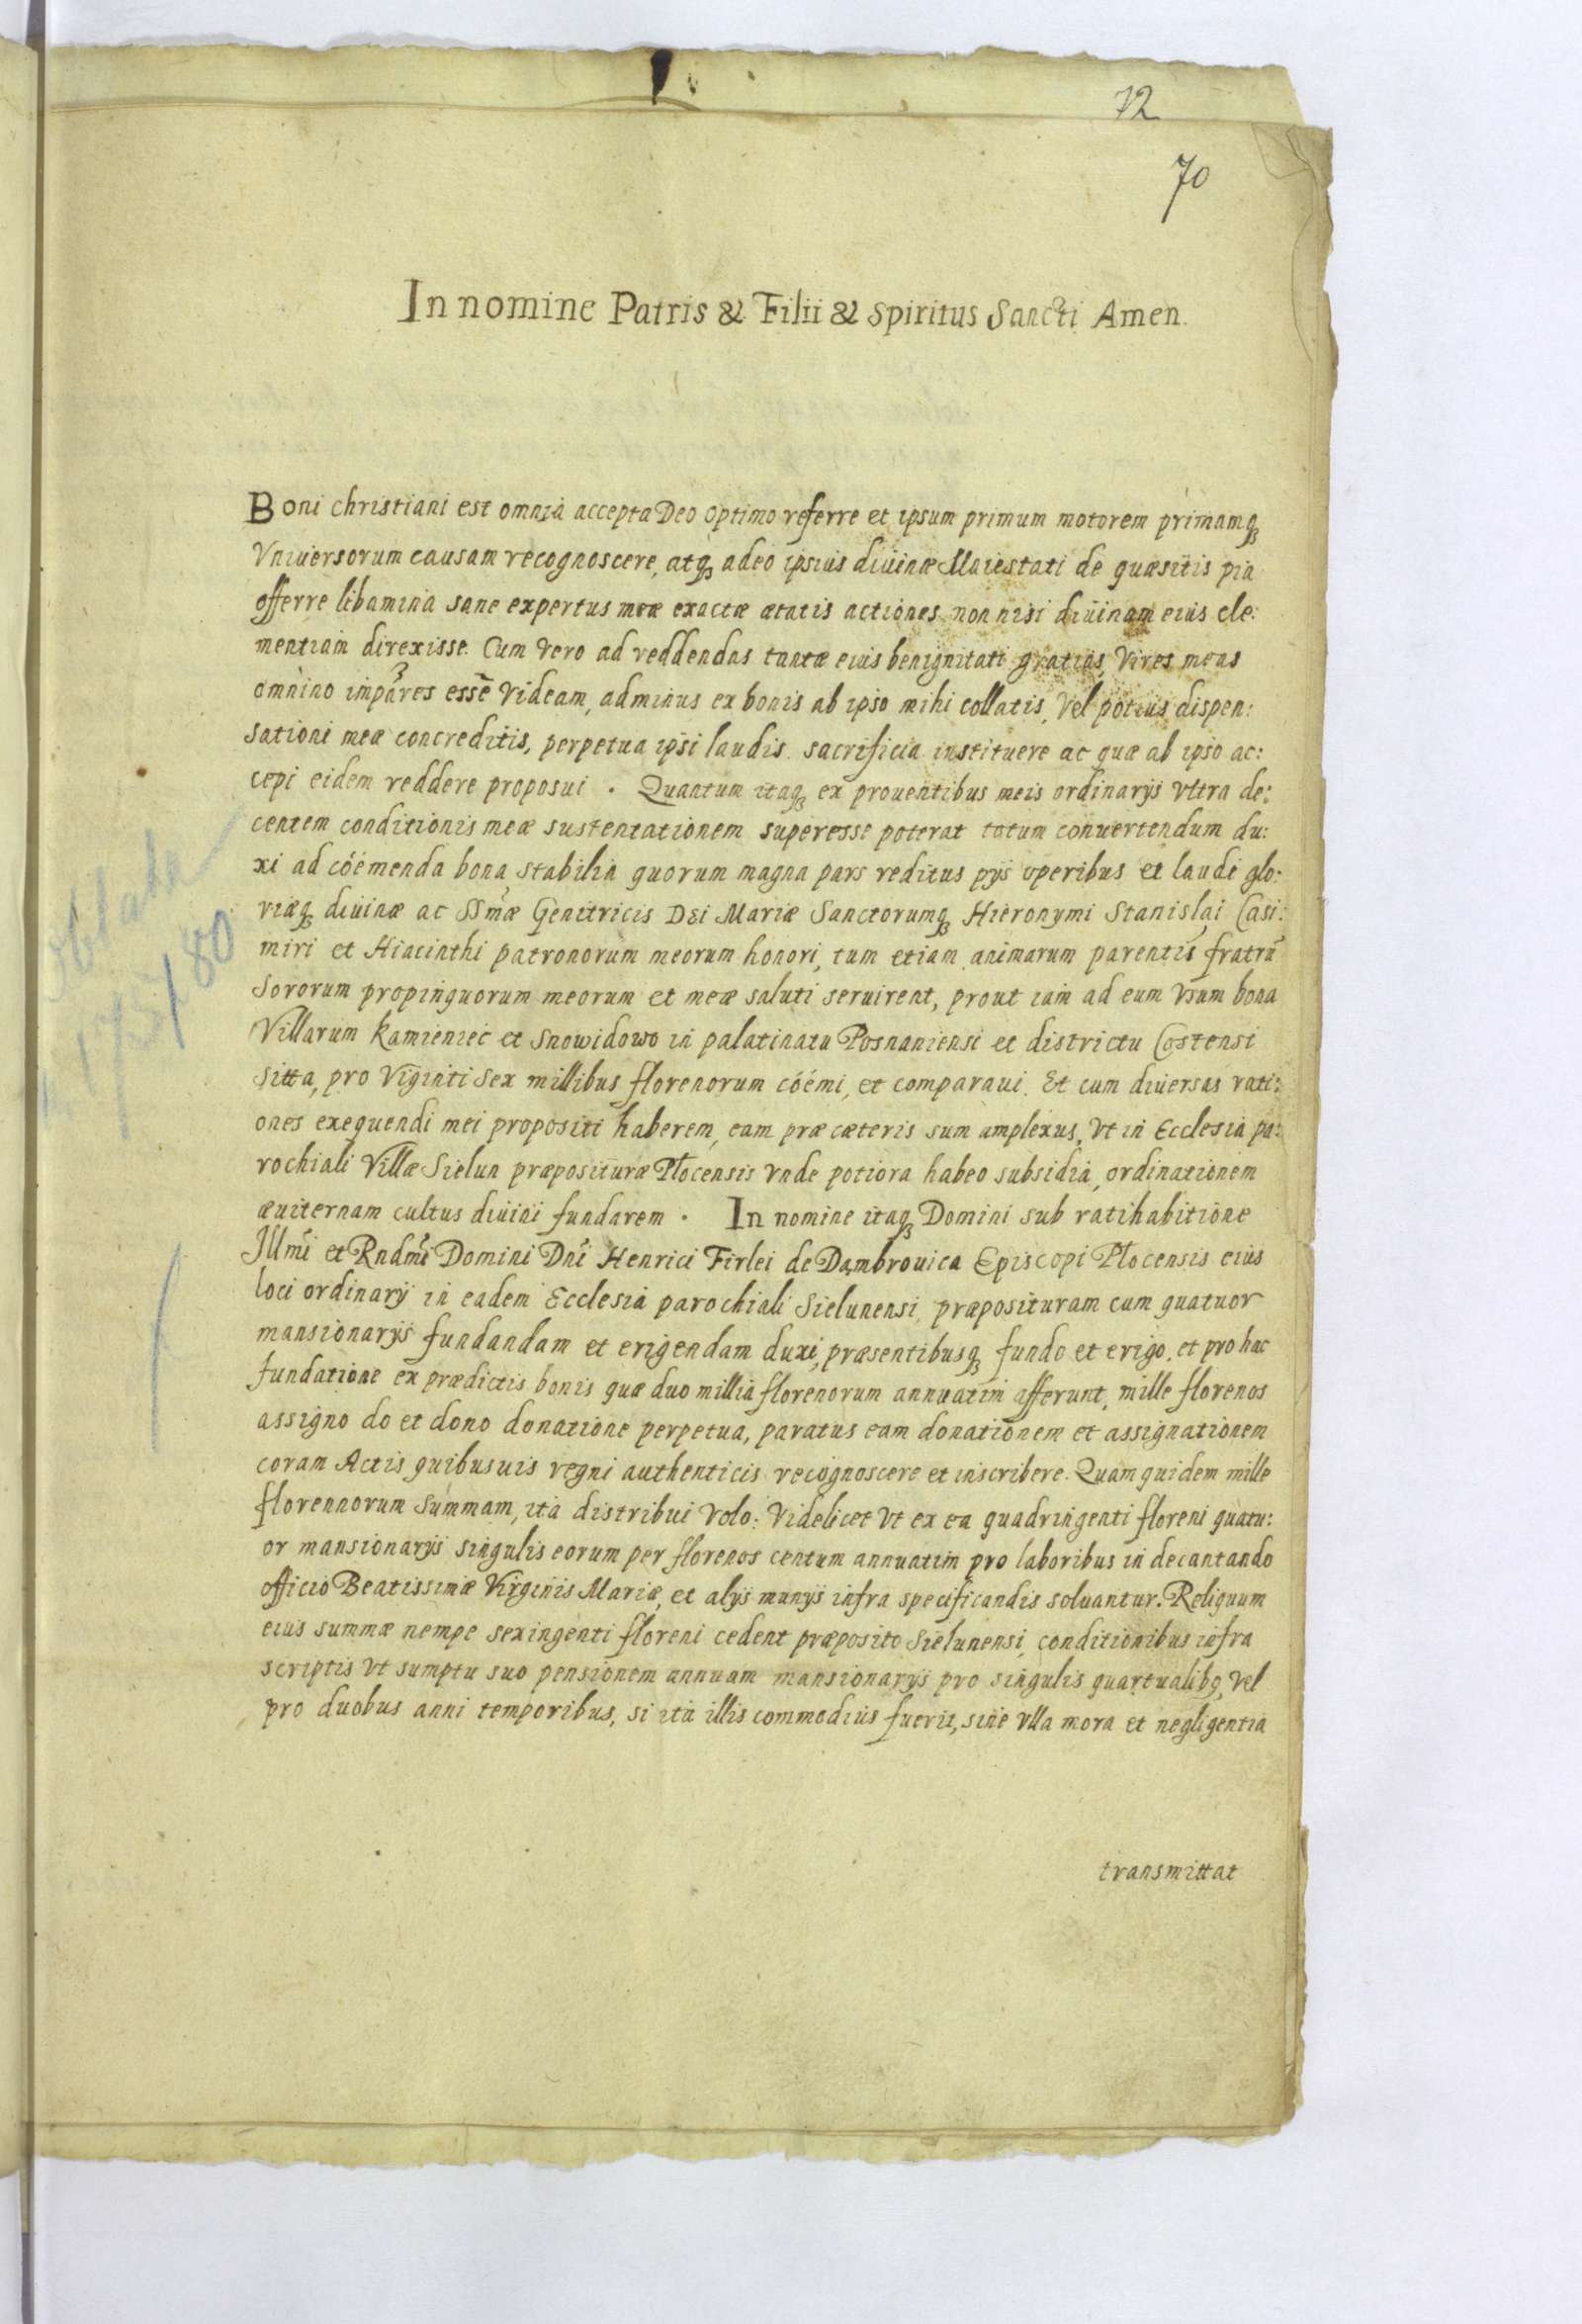 72
70
In nomine Patris & Filii & Spiritus Sancti Amen.
Boni christiani est omnia accepta Deo optimo referre et ipsum primum motorem primamq;
Vniuersorum causam recognoscere, atq; adeo ipsius diuinæ Maiestati de quæsitis pia
offerre libamina sane expertus meæ exactæ ætatis actiones non nisi diuinam eius cle:
mentiam direxisse. Cum vero ad reddendas tantæ eius benignitati gratias, vires meas
omnino impares esse videam, adminus ex bonis ab ipso mihi collatis, vel potius dispen:
sationi meæ concreditis, perpetua ipsi laudis sacrificia instituere ac quæ ab ipso ac:
cepi eidem reddere proposui. Quantum itaq; ex prouentibus meis ordinarys vltra de:
centem conditionis meæ sustentationem superesse poterat totum conuertendum du:
xi ad coémenda bona stabilia quorum magna pars reditus pys operibus et laudi glo:
riæq; diuinæ ac SSmæ Genitricis DEi Mariæ Sanctorumq; Hieronymi Stanislai Casi:
miri et Hiacinthi patronorum meorum honori, tum etiam animarum parentis fratrū
Sororum propinquorum meorum et meæ saluti seruirent, prout iam ad eum vsum bona
Villarum Kamieniec et Snowidowo in palatinatu Posnaniensi et districtu Costensi
sitta, pro Viginti sex millibus florenorum coémi, et comparaui. Et cum diuersas rati:
ones exequendi mei propositi haberem, eam præ cæteris sum amplexus, vt in Ecclesia pa:
rochiali Villæ Sielun præposituræ Plocensis vnde potiora habeo subsidia, ordinationem
æuiternam cultus diuini fundarem. In nomine itaq; Domini sub ratihabitione
Illmi et Rndmi Domini Dni Henrici Firlei de Dambrouica Episcopi Plocensis eius
loci ordinary in eadem Ecclesia parochiali Sielunensi, præposituram cum quatuor
mansionarys fundandam et erigendam duxi, præsentibusq; fundo et erigo. et pro hac
fundatione ex prædictis bonis quæ duo millia florenorum annuatim afferunt, mille florenos
assigno do et dono donatione perpetua, paratus eam donationem et assignationem
coram Actis quibusuis regni authenticis recognoscere et inscribere. Quam quidem mille
florennorum summam, ita distribui volo: videlicet vt ex ea quadringenti floreni quatu:
or mansionarys singulis eorum per florenos centum annuatim pro laboribus in decantando
officio Beatissimæ Virginis Mariæ, et alys munys infra specificandis soluantur. Reliquum
eius summæ nempe sexingenti floreni cedent præposito Sielunensi, conditionibus infra
scriptis vt sumptu suo pensionem annuam mansionarys pro singulis quartualibq, vel
pro duobus anni temporibus, si ita illis commodius fuerit, sine vlla mora et negligentia
transmittat
oblata
80